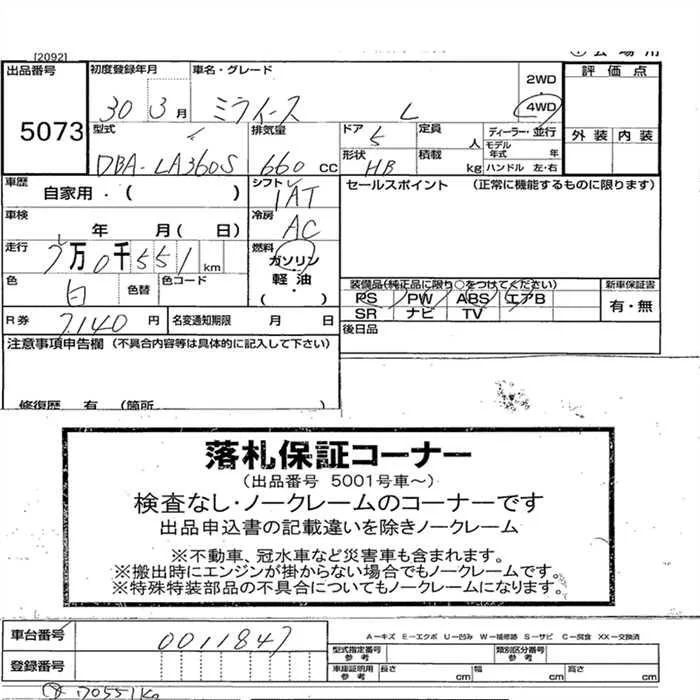 [2092]
出品番号 5073
初度登録年月 30 3月
車名・グレード ミライース L
2WD
4WD
評価点
外装 内装
型式 DBA-LA360S
排気量 660 CC
ドア 5
定員 人
形状 HB
積載 kg
ディーラー・並行
モデル年式 年
ハンドル 左・右
車歴 自家用・( )
シフト IAT
セールスポイント (正常に機能するものに限ります)
車検 年 月(日)
冷房 AC
走行 7万0千551km
燃料 ガソリン・軽油・( )
色 白
色替
色コード
装備品(純正品に限り○をつけてください)
PS PW ABS エアB
SR ナビ TV
新車保証書
有・無
R券 7.140円
名変通知期限 月 日
後日品
注意事項申告欄 (不具合内容等は具体的に記入して下さい)
修復歴 有 (箇所 )
落札保証コーナー
(出品番号 5001号車~)
検査なし・ノークレームのコーナーです
出品申込書の記載違いを除きノークレーム
※不動車、冠水車など災害車も含まれます。
※搬出時にエンジンが掛からない場合でもノークレームです。
※特殊特装部品の不具合についてもノークレームになります。
車台番号 0011847
登録番号
A-キズ E-エクボ U-凹み W-補修跡 S-サビ C-腐食 XX-交換済
型式指定番号 参考
類別区分番号 参考
車庫証明用 参考 長さ cm 幅 cm 高さ cm